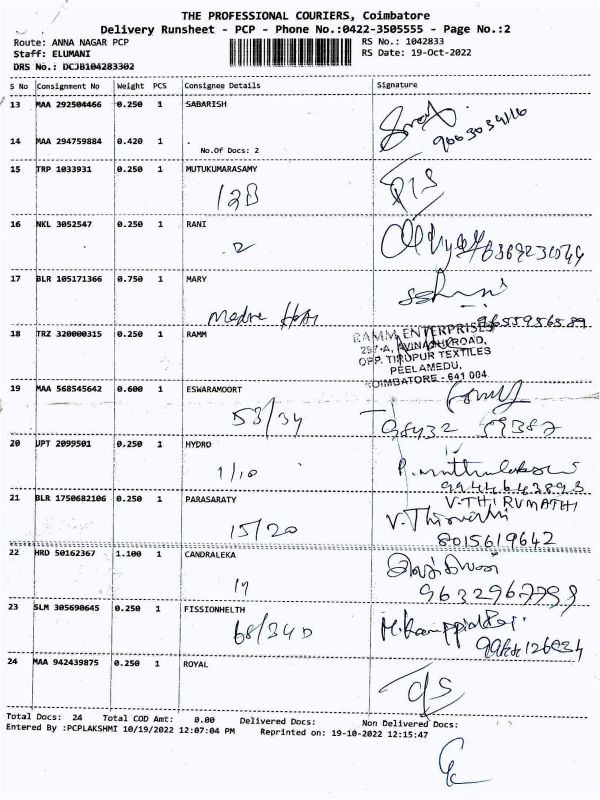 THE PROFESSIONAL COURIERS, Coimbatore
Delivery Runsheet - PCP - Phone No.:0422-3505555 - Page No.:2
Route: ANNA NAGAR PCP RS No.: 1042833
Staff: ELUMANI RS Date: 19-Oct-2022
DRS No.: DCJB104283302
S No Consignment No Weight PCS Consignee Details Signature
13 MAA 292504466 0.250 1 SABARISH
9003034116
14 MAA 294759884 0.420 1 .
No.Of Docs: 2
15 TRP 1033931 0.250 1 MUTUKUMARASAMY
16 NKL 3052547 0.250 1 RANI
2
17 BLR 105171366 0.750 1 MARY
9655956589
18 TRZ 320000315 0.250 1 RAMM
RAMM ENTERPRISES
297-A, AVINASHI ROAD,
OPP. TIRUPUR TEXTILES
PEELAMEDU,
COIMBATORE - 641 004
19 MAA 568545642 0.600 1 ESWARAMOORT
53/34
20 UPT 2099501 0.250 1 HYDRO
1/10
9944643893
21 BLR 1750682106 0.250 1 PARASARATY
V.THIRUMATHI
15/20
8015619642
22 HRD 50162367 1.100 1 CANDRALEKA
23 SLM 305690645 0.250 1 FISSIONHELTH
68/34D
24 MAA 942439875 0.250 1 ROYAL
Total Docs: 24 Total COD Amt: 0.00 Delivered Docs: Non Delivered Docs:
Entered By :PCPLAKSHMI 10/19/2022 12:07:04 PM Reprinted on: 19-10-2022 12:15:47